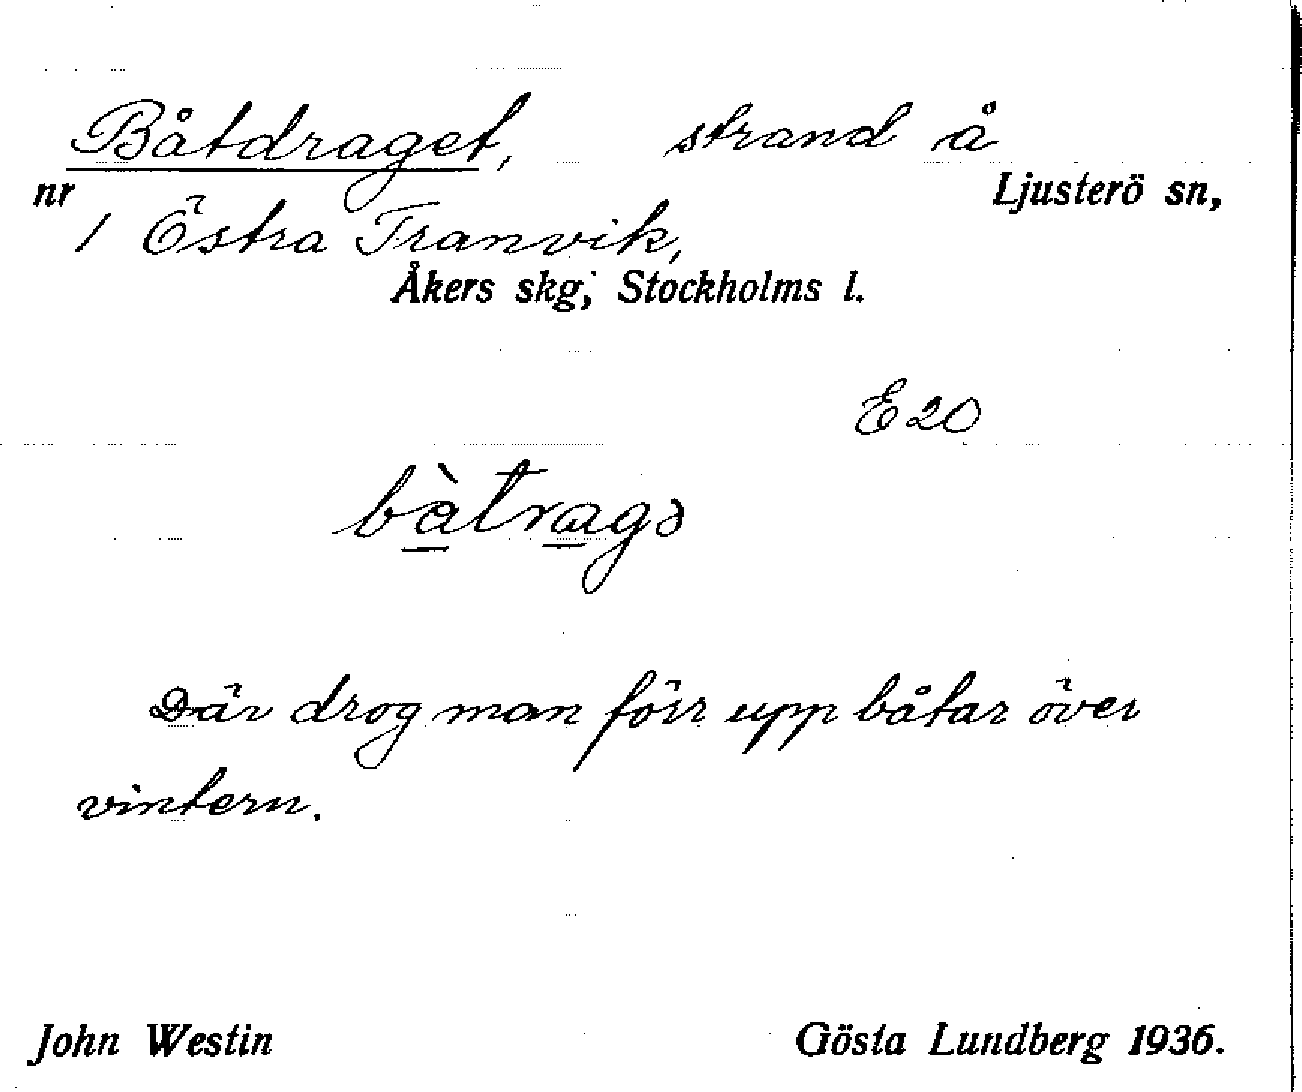 Båtdraget, strand å
nr Ljusterö sn,
1 Östra Tranvik,
Åkers skg, Stockholms l.
E20
bàtragə
Där drog man förr upp båtar över
vintern.
John Westin Gösta Lundberg 1936.